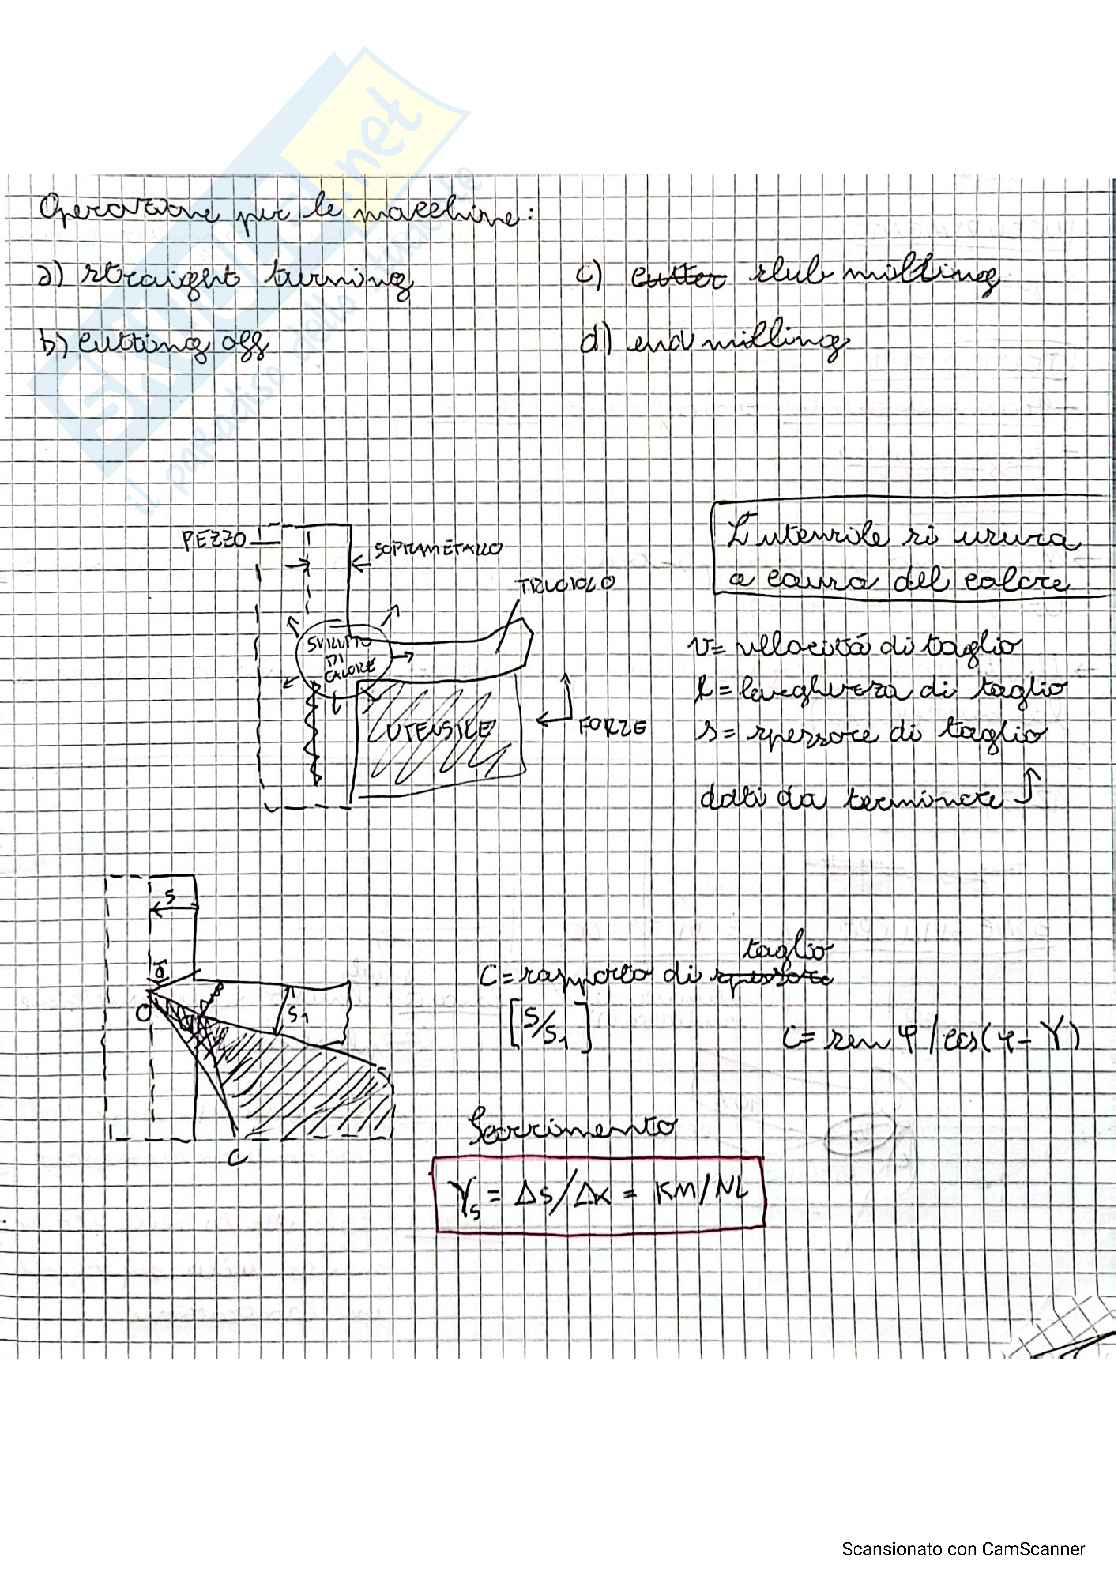 Operazione per le macchine:
a) straight turning
b) cutting off
c) cutter slub milling
d) end milling
PEZZO
SOPRAMETALLO
TRUCIOLO
SVILUPPO
DI
CALORE
UTENSILE
FORZE
L'utensile si usura
a causa del calore
v= velocità di taglio
l = larghezza di taglio
s= spessore di taglio
dati da terminare
s
O
S1
C
taglio
C = rapporto di spessore
[S/S1]
C = sen φ / cos(φ - γ)
Scorrimento
γs = Δs/Δx = KM/NL
SKUOLA.net
il paradiso dello studente
Scansionato con CamScanner